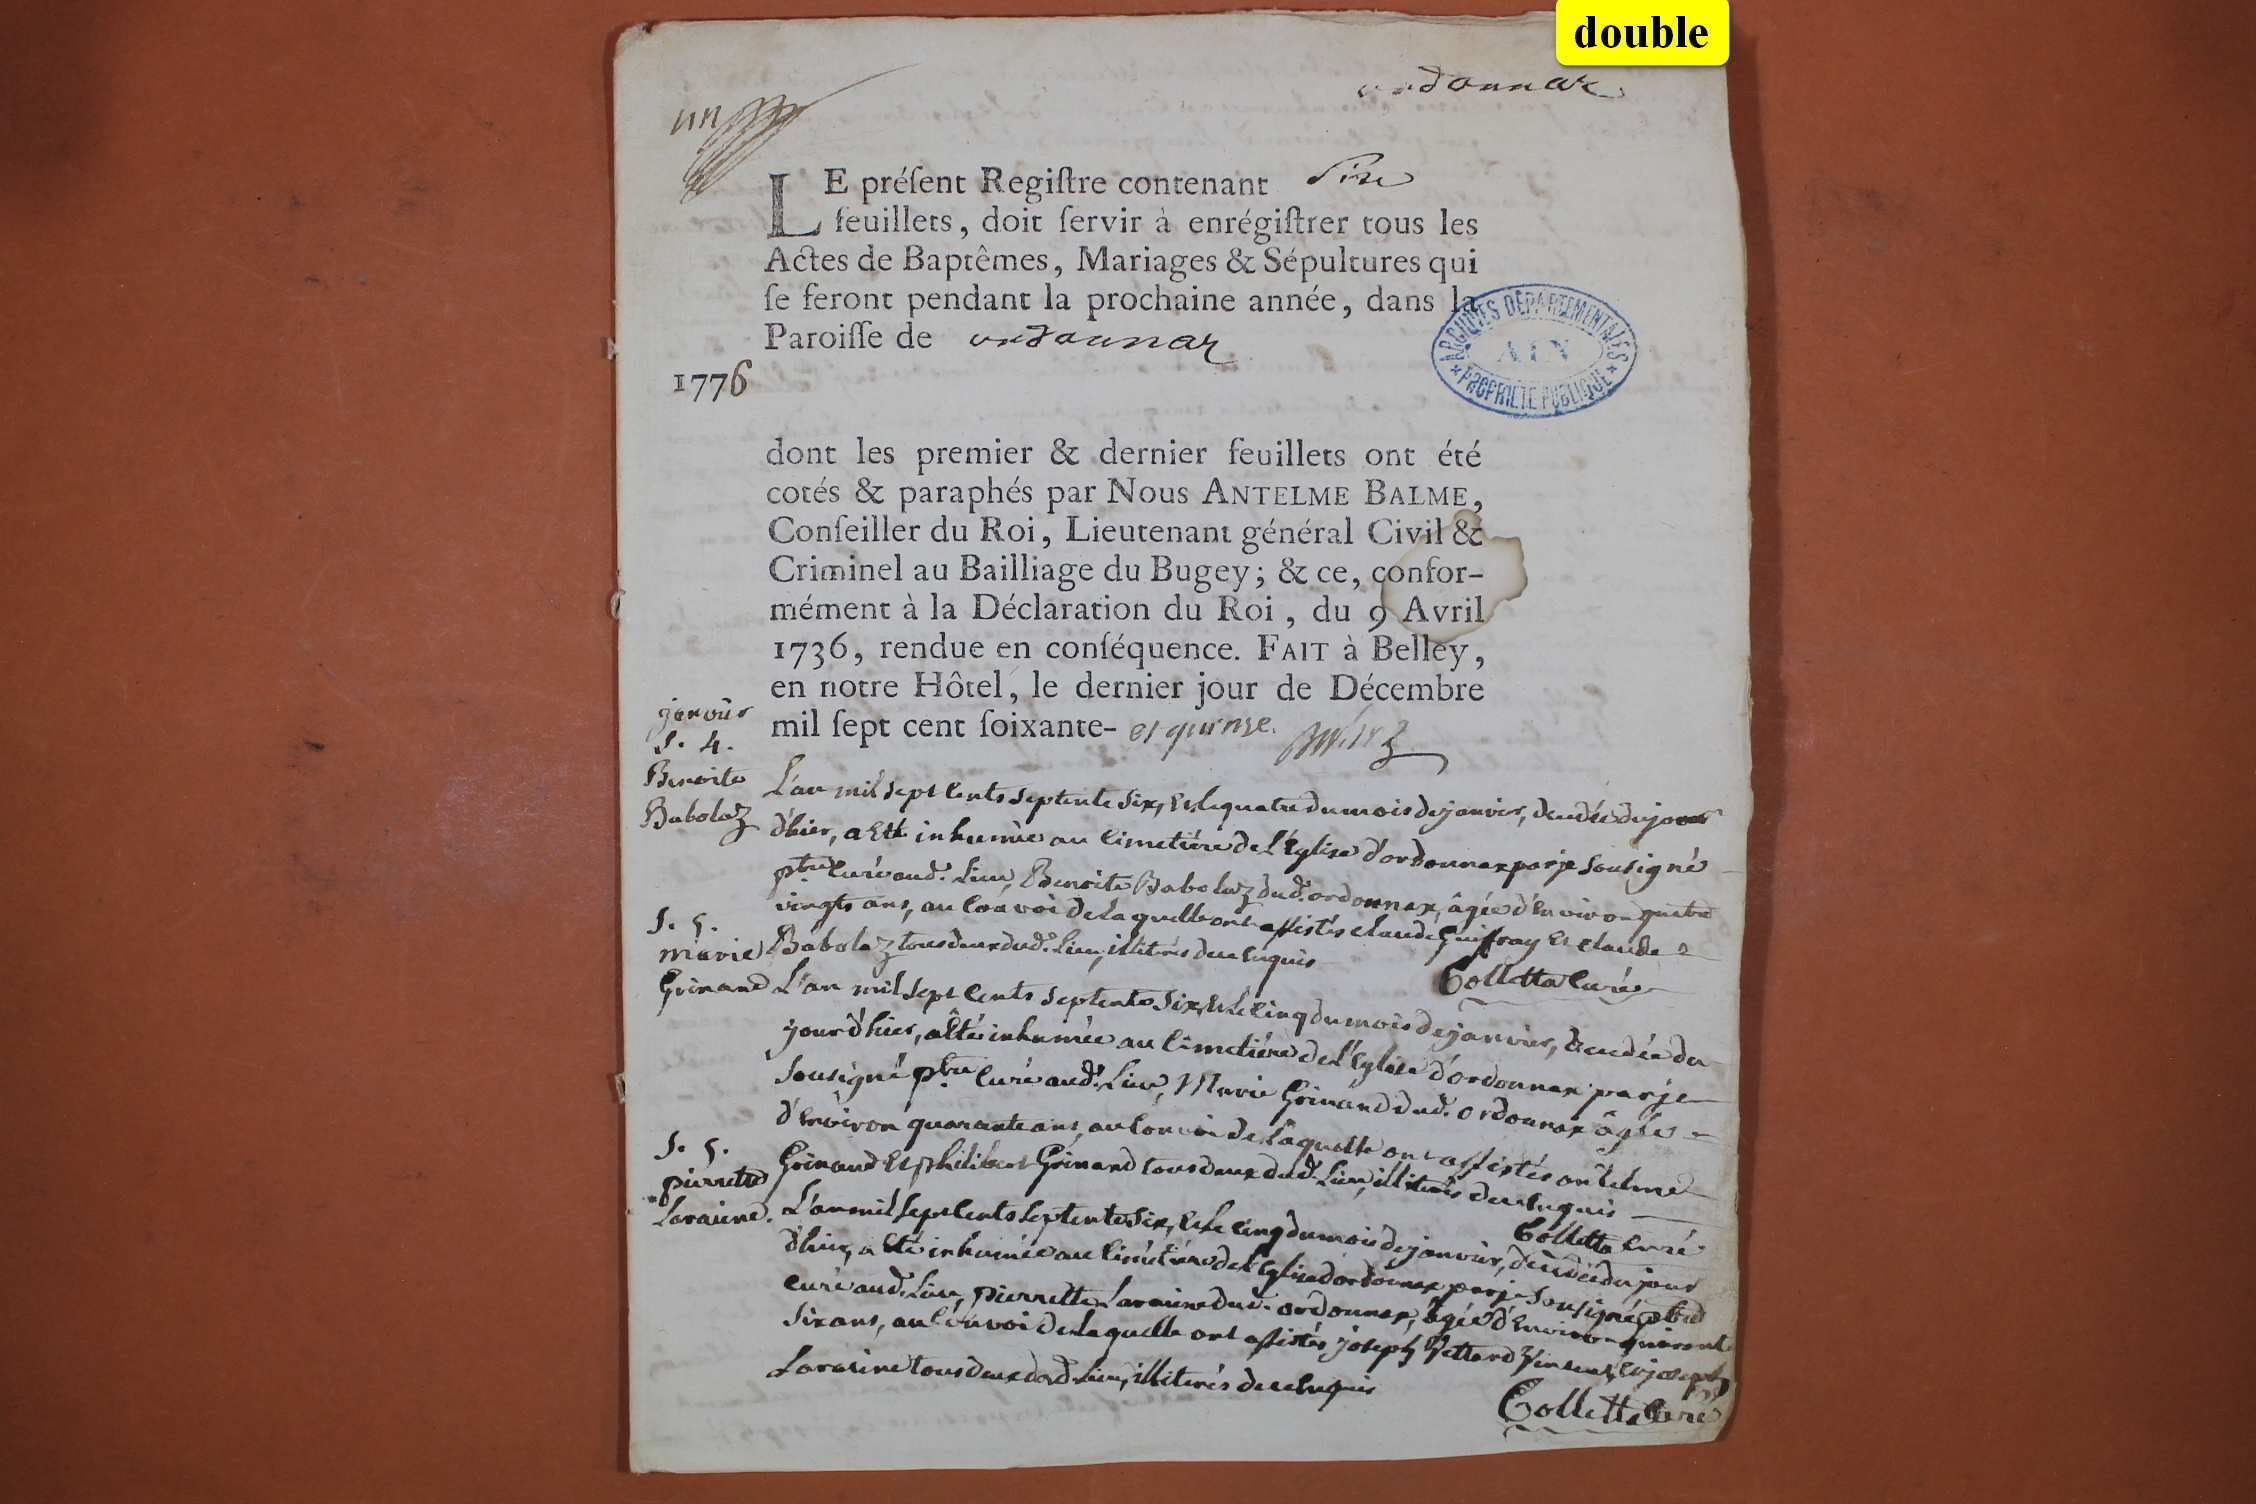 double
ordonnax
un
LE préſent Regiſtre contenant Six
feuillets, doit ſervir à enrégiſtrer tous les
Actes de Baptêmes, Mariages & Sépultures qui
ſe feront pendant la prochaine année, dans la
Paroiſſe de ordonnax
ARCHIVES DÉPARTEMENTALES
AIN
* PROPRIÉTÉ PUBLIQUE *
1776
dont les premier & dernier feuillets ont été
cotés & paraphés par Nous ANTELME BALME,
Conſeiller du Roi, Lieutenant général Civil &
Criminel au Bailliage du Bugey; & ce, confor-
mément à la Déclaration du Roi, du 9 Avril
1736, rendue en conſéquence. FAIT à Belley,
en notre Hôtel, le dernier jour de Décembre
mil ſept cent ſoixante- et quinze.
janvier
S. 4.
Benoite
Babolaz
L'an mil sept cents septente six, et le quatre du mois de janvier, decedée du jour
d'hier, a été inhumée au cimetiére de l'Eglise d'ordonnax par je sousigné
ptre curé aud. Lieu, Benoite Babolaz dud. ordonnax, âgée d'environ quatre
vingts ans, au convoi de laquelle ont assistés claude Guiffray et claude
Babolaz tous deux dud. Lieu, illiterés de ce enquis
Colletta curé
S. 5.
marie
Grinand
L'an mil sept cents septente six, et le cinq du mois de janvier, decedée du
jour d'hier, a été inhumée au cimetiére de l'Eglise d'ordonnax par je
sousigné ptre curé aud. Lieu, Marie Grinand dud. ordonnax âgée
d'environ quarante ans, au convoi de laquelle ont assistés antelme
Grinand et philibert Grinand tous deux dud. Lieu, illiterés de ce enquis
Colletta curé
S. 5.
pierrette
Laraine.
L'an mil sept cents septente six, et le cinq du mois de janvier, decedée du jour
d'hier, a été inhumée au cimetiére de l'Eglise d'ordonnax par je sousigné ptre
curé aud. Lieu, pierrette Laraine dud. ordonnax, âgée d'environ quarante
six ans, au convoi de laquelle ont assistés joseph Vettard et joseph
Laraine tous deux dud. Lieu, illiterés de ce enquis
Colletta curé